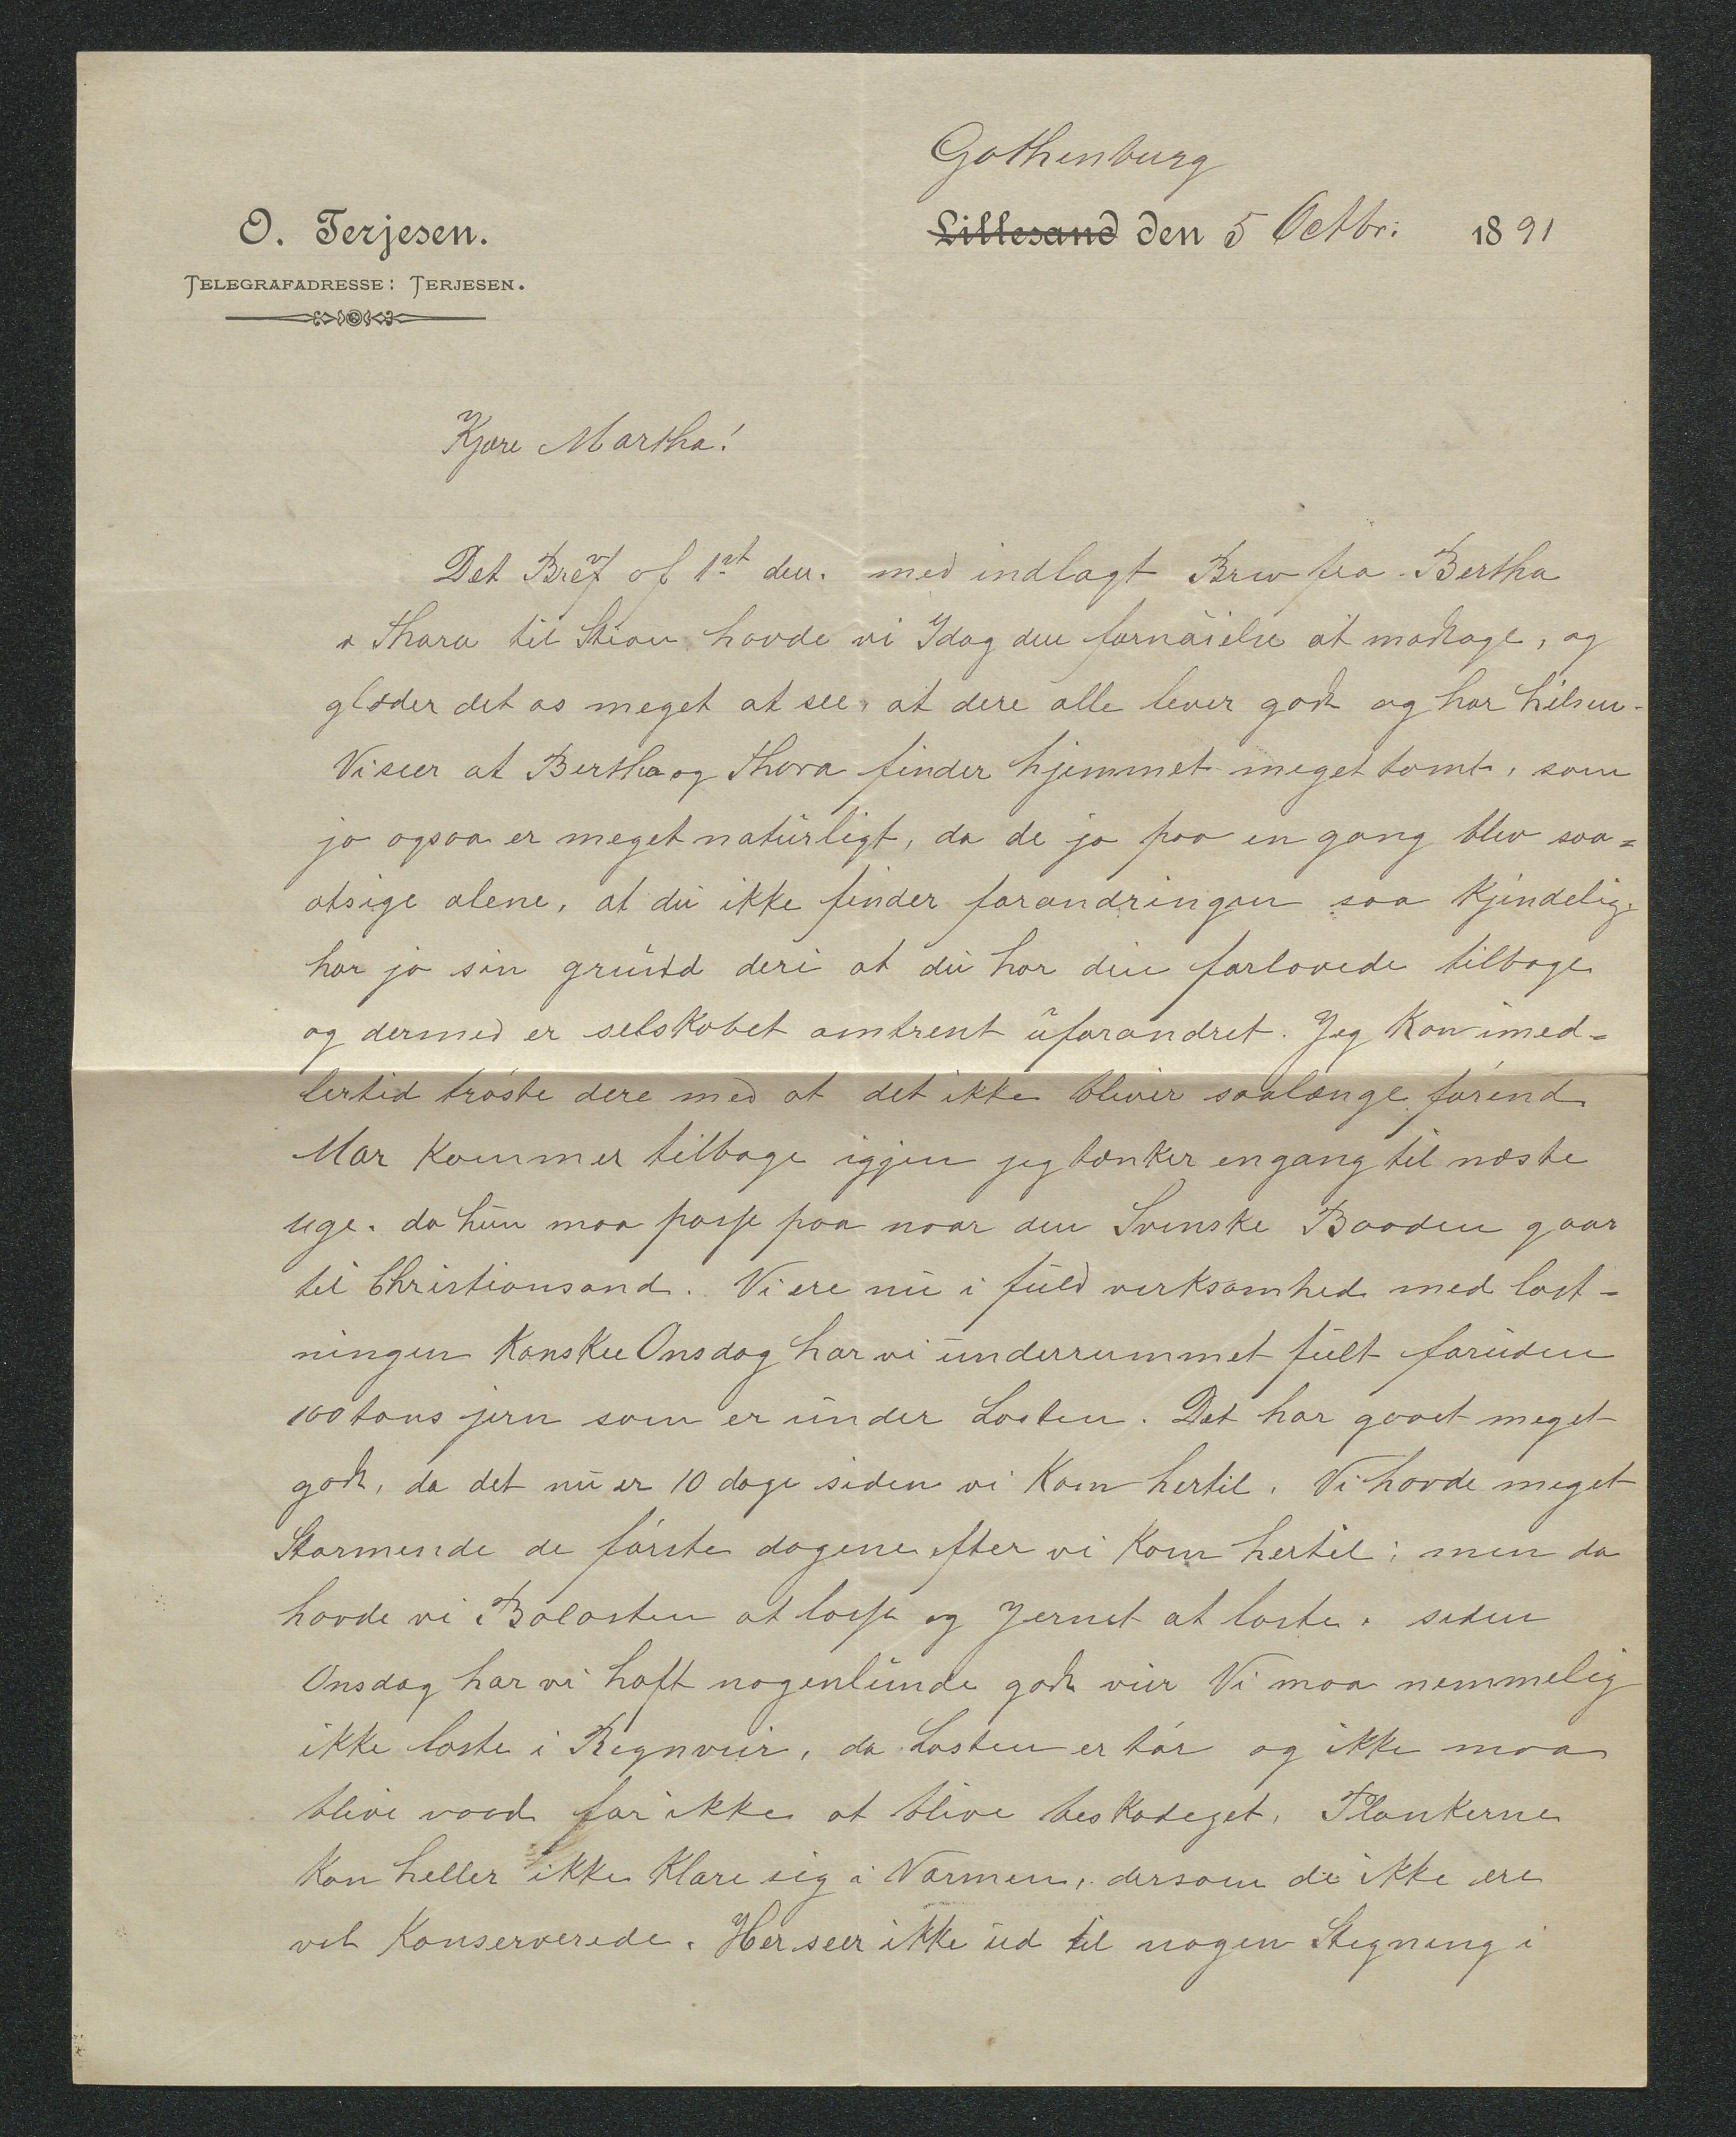 Gothenburg
O. Terjesen.
Lillesand den 5 Octbr. 1891
TELEGRAFADRESSE: TERJESEN.
Kjære Martha!
Det Bref af 1st den. med indlagt Brev fra Bertha
& Thora til Stian havde vi Idag den fornöielse at modtage, og
glæder det os meget at see, at dere alle lever godt og har helsen.
Vi seer at Bertha og Thora finder hjemmet meget tomt, som
jo ogsaa er meget natürligt, da de jo paa en gang blev saa=
atsige alene, at dü ikke finder forandringen saa kjendelig
har jo sin gründ deri at dü har din forlovede tilbage
og dermed er selskabet omtrent üforandret. Jeg kan imed=
lertid tröste dere med at det ikke bliver saalænge förend
Mor kommer tilbage igjen jeg tænker engang til næste
uge. da hün maa passe paa naar den Svenske Baaden gaar
til Christiansand. Vi ere nü i füld verksomhed med last-
ningen kanskee Onsdag har vi ünderrummet fült forüden
100 tons jern som er ünder Lasten. Det har gaaet meget
godt, da det nü er 10 dage siden vi kom hertil. Vi havde meget
Stormende de förste dagene efter vi kom hertil; men da
havde vi Balasten at losse og Jernet at laste. siden
Onsdag har vi haft nogenlünde godt veir Vi maa nemmelig
ikke laste i Regnveir, da Lasten er tör og ikke maa
blive vaad for ikke at blive beskadeget. Plankerne
kan heller ikke klare sig i Varmen, dersom de ikke ere
vel konserverede. Her seer ikke üd til nogen Stegning i